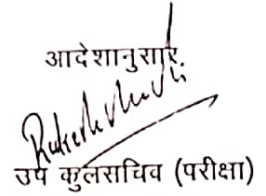 आदेशानुसार
उप कुलसचिव (परीक्षा)